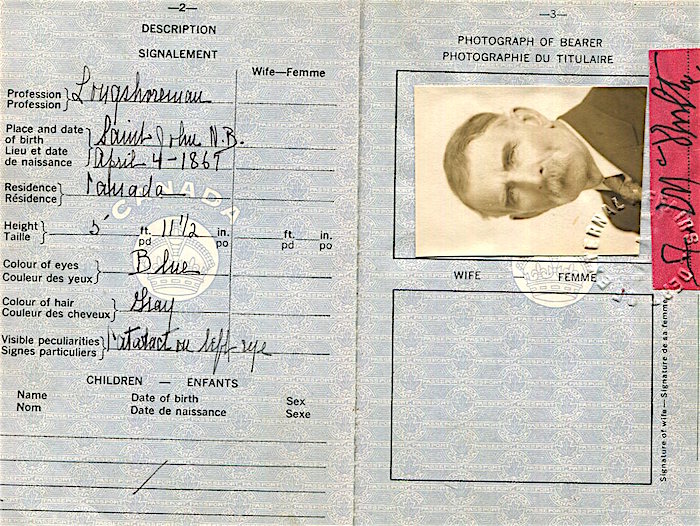 —2—
DESCRIPTION
SIGNALEMENT
Wife—Femme
Profession
Profession
Longshoreman
Place and date
of birth
Lieu et date
de naissance
Saint John N.B.
April 4-1867
Residence
Résidence
Canada
Height
Taille
5' ft. pd 11 1/2 in. po
ft. pd in. po
Colour of eyes
Couleur des yeux
Blue
Colour of hair
Couleur des cheveux
Gray
Visible peculiarities
Signes particuliers
Cataract on left-eye
CHILDREN — ENFANTS
Name
Nom
Date of birth
Date de naissance
Sex
Sexe
CANADA
—3—
PHOTOGRAPH OF BEARER
PHOTOGRAPHIE DU TITULAIRE
WIFE FEMME
EXTERNAL
Signature of wife—Signature de sa femme